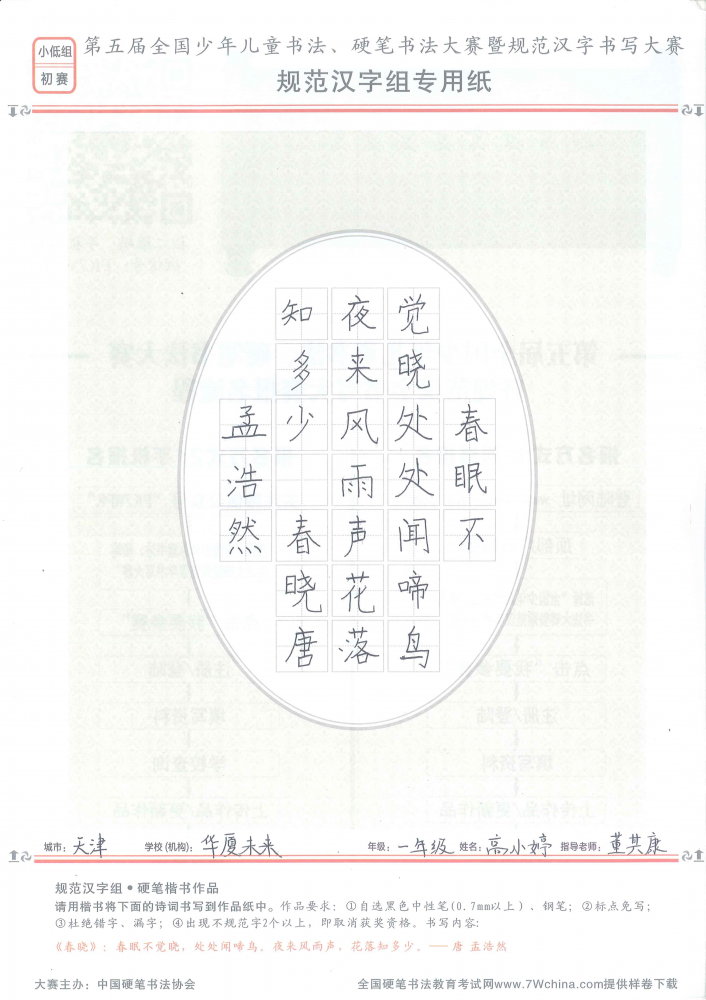 小低组
初赛
第五届全国少年儿童书法、硬笔书法大赛暨规范汉字书写大赛
规范汉字组专用纸
春眠不
觉晓处处闻啼鸟
夜来风雨声花落
知多少 春晓唐
孟浩然
城市:天津 学校(机构):华厦未来 年级:一年级 姓名:高小婷 指导老师:董其康
规范汉字组•硬笔楷书作品
请用楷书将下面的诗词书写到作品纸中。作品要求:①自选黑色中性笔(0.7mm以上)、钢笔;②标点免写;
③杜绝错字、漏字;④出现不规范字2个以上,即取消获奖资格。书写内容:
《春晓》:春眠不觉晓,处处闻啼鸟。夜来风雨声,花落知多少。——唐 孟浩然
大赛主办:中国硬笔书法协会 全国硬笔书法教育考试网www.7Wchina.com提供样卷下载